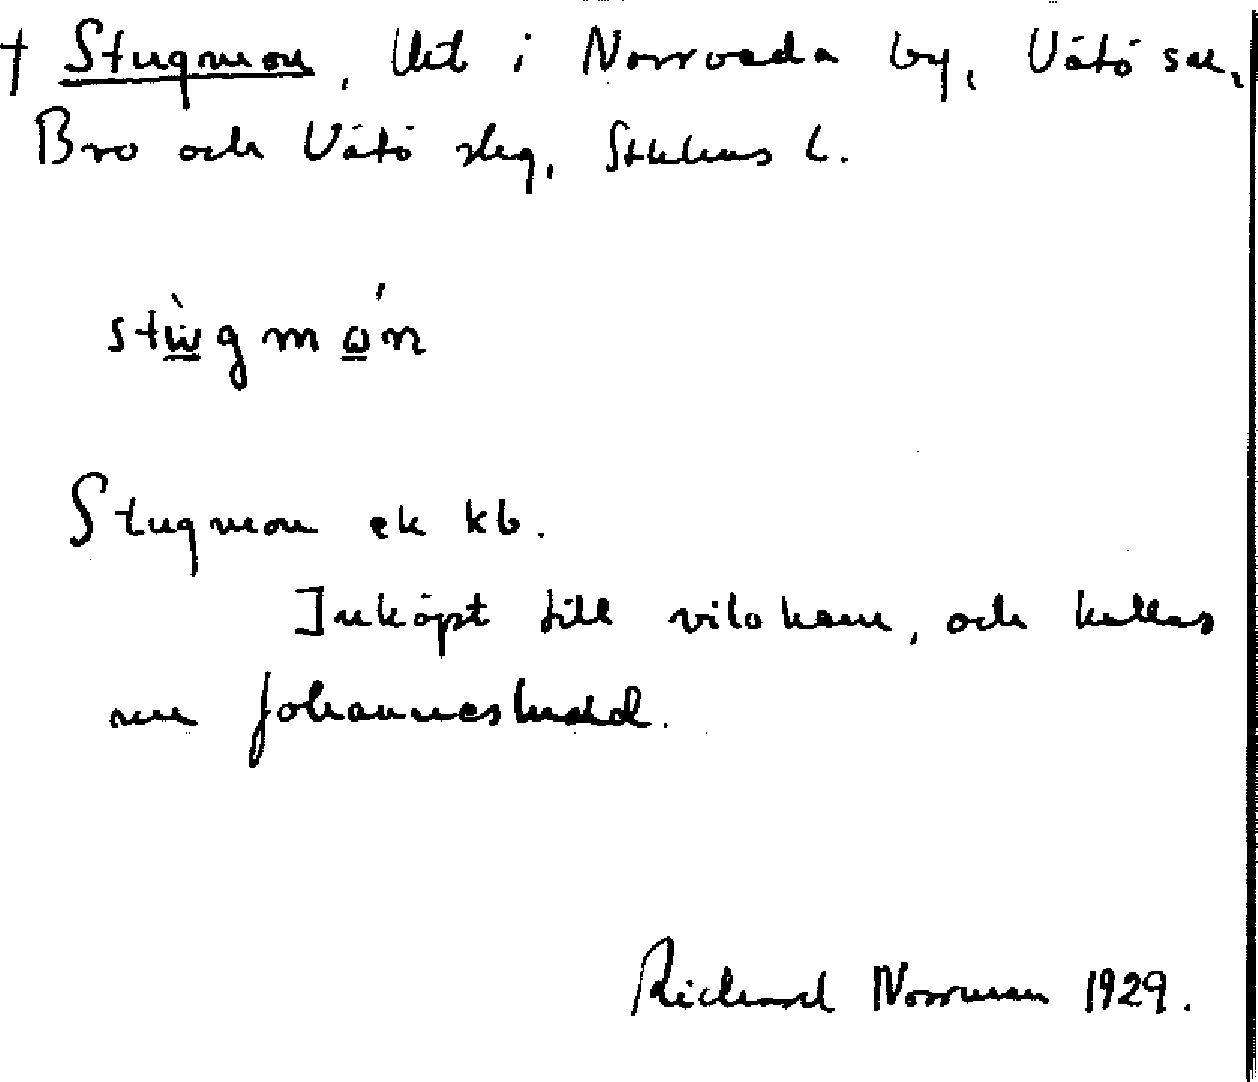 † Stugmon, Utl i Norrvada by, Vätö sn,
Bro och Vätö skg, Sthlms l.
stu̇̀gmón
Stugmon ek kb.
Inköpt till vilohem, och kallas
nu Johanneslund.
Richard Norrman 1929.